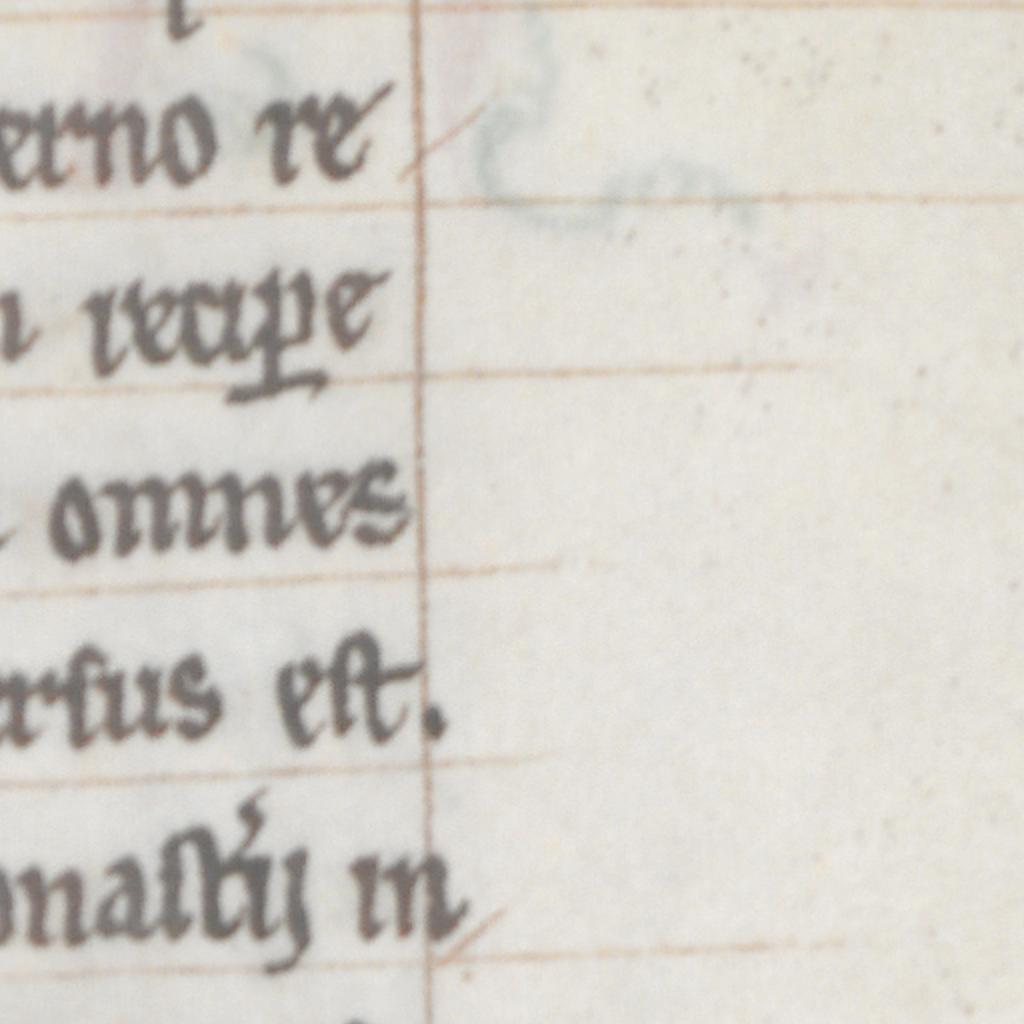 erno re
recipe
omnes
ersus est.
onastij in